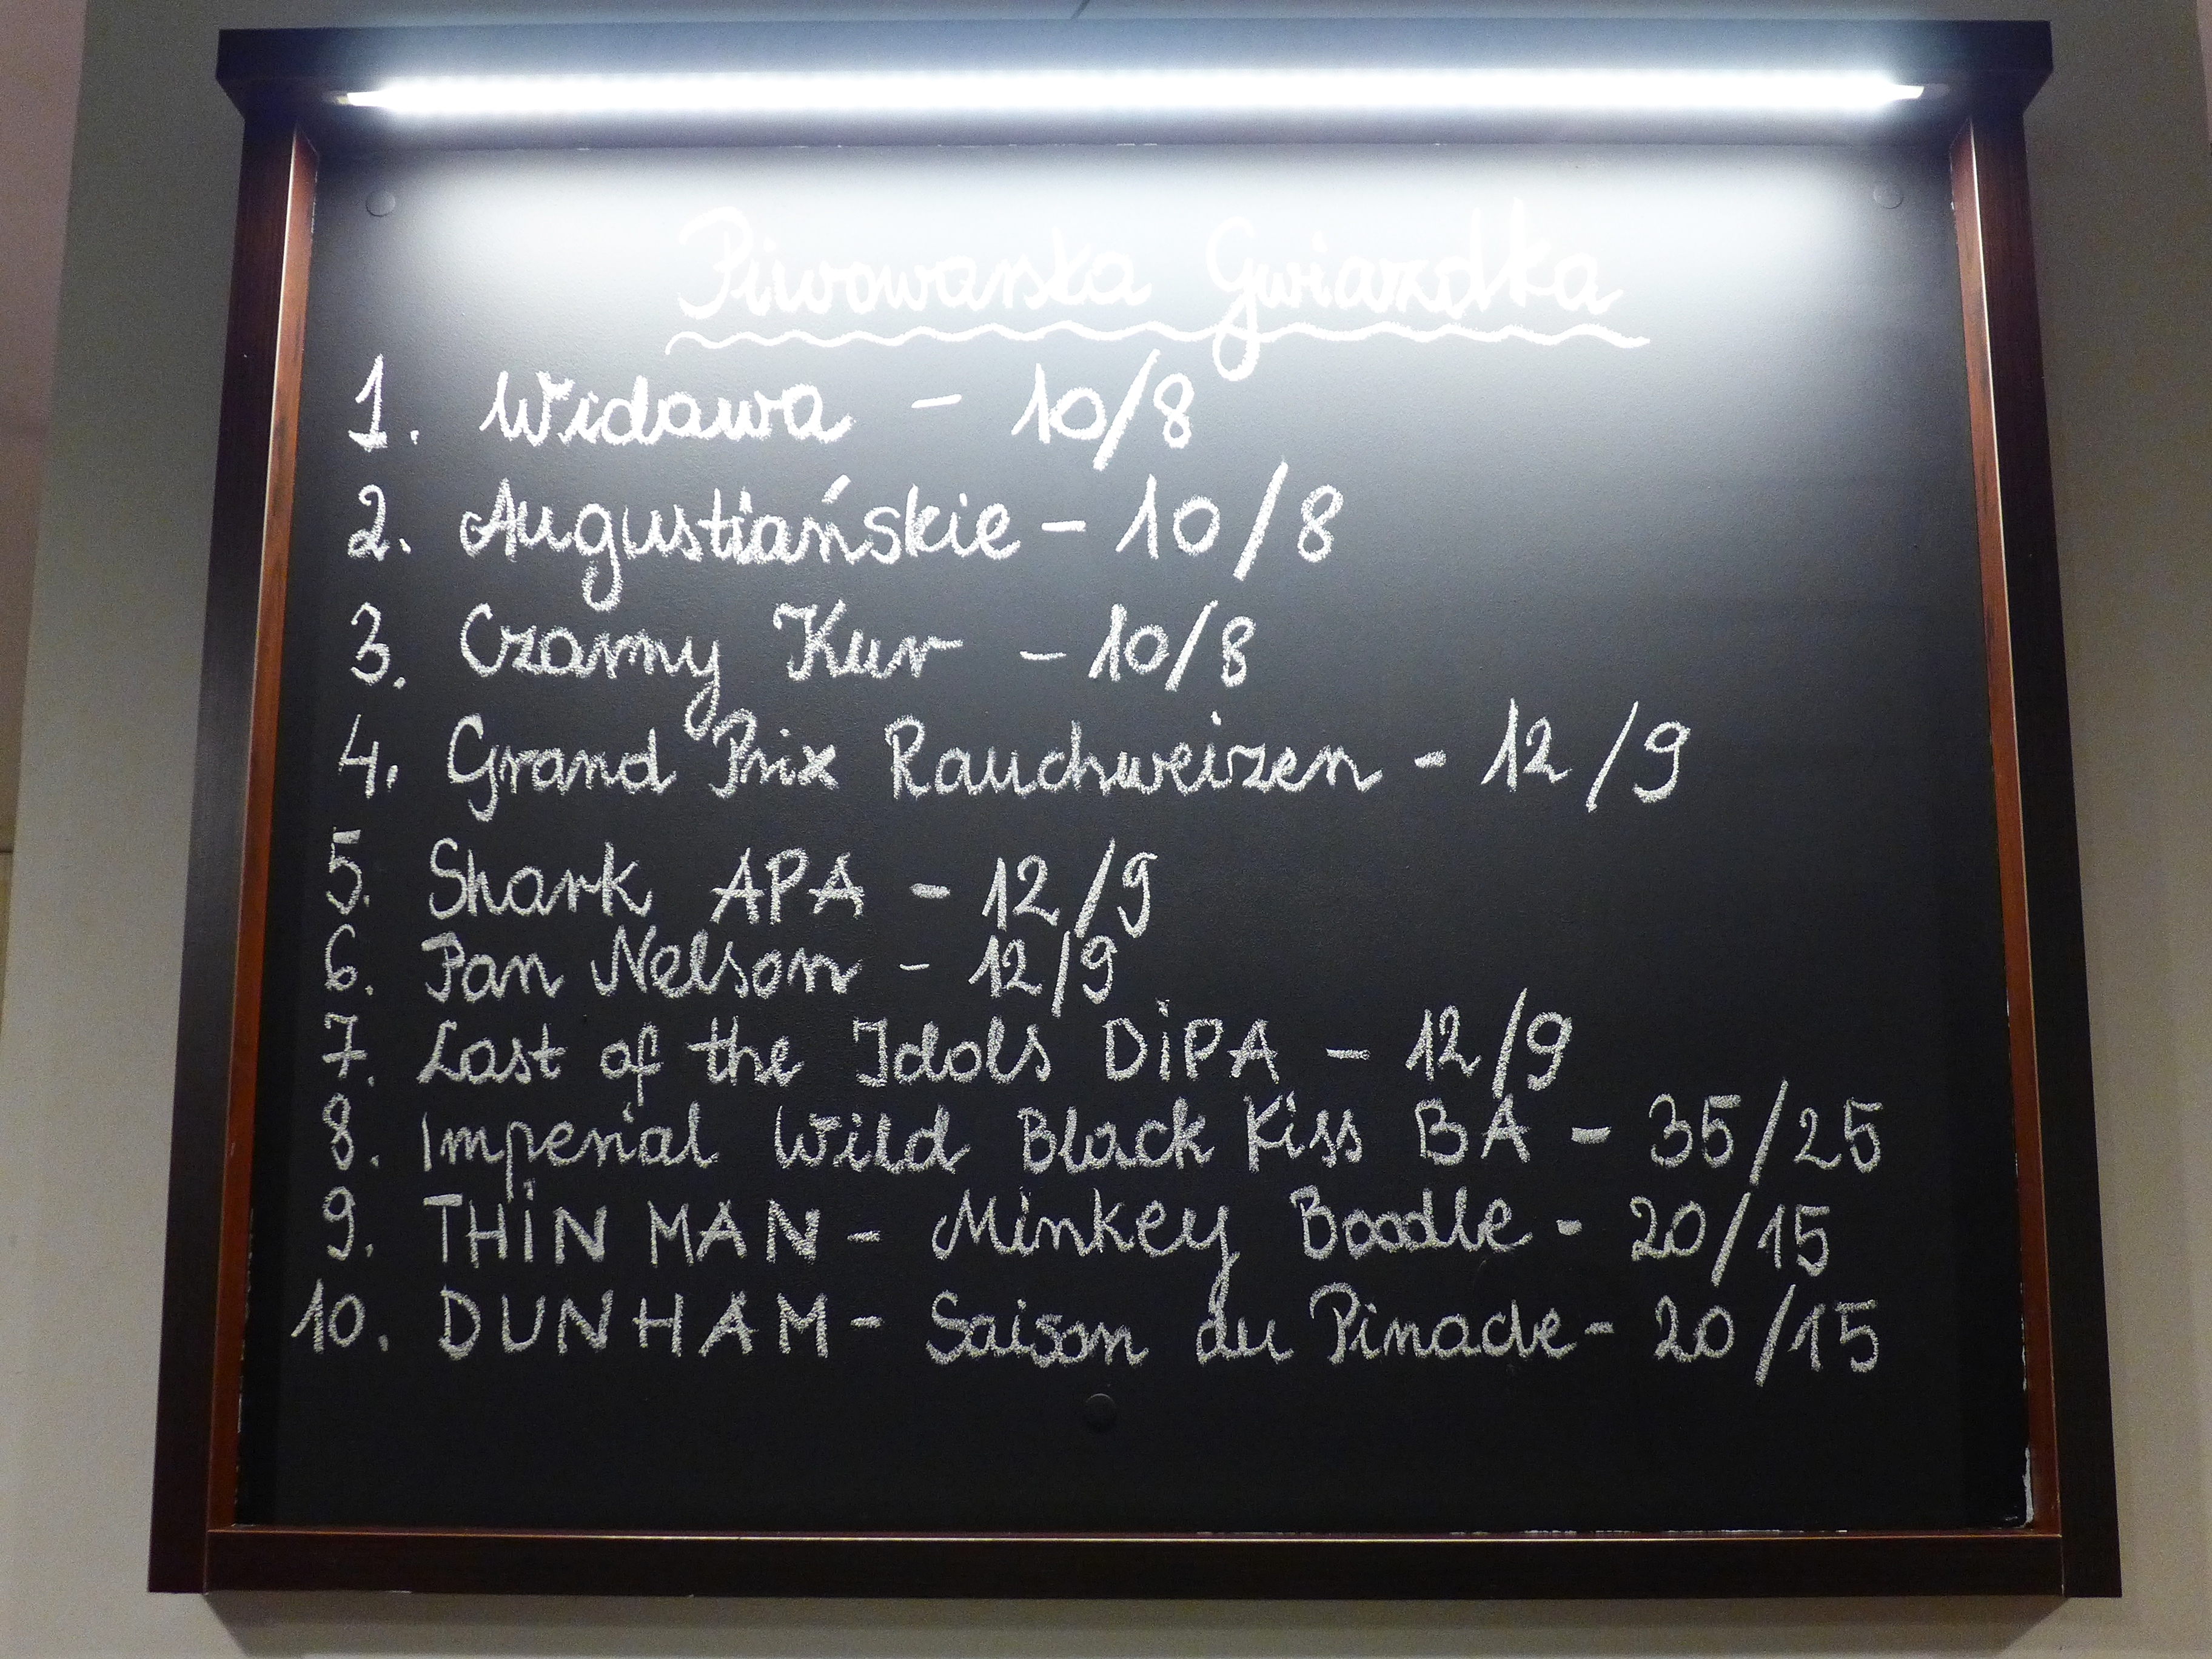 Piwowarska Gwiazdka
1. Widawa - 10/8
2. Augustiańskie - 10/8
3. Czarny Kur - 10/8
4. Grand Prix Rauchweizen - 12/9
5. Shark APA - 12/9
6. Pan Nelson - 12/9
7. Last of the Idols DiPA - 12/9
8. Imperial Wild Black Kiss BA - 35/25
9. THiN MAN - Minkey Boodle - 20/15
10. DUNHAM - Saison du Pinacle - 20/15